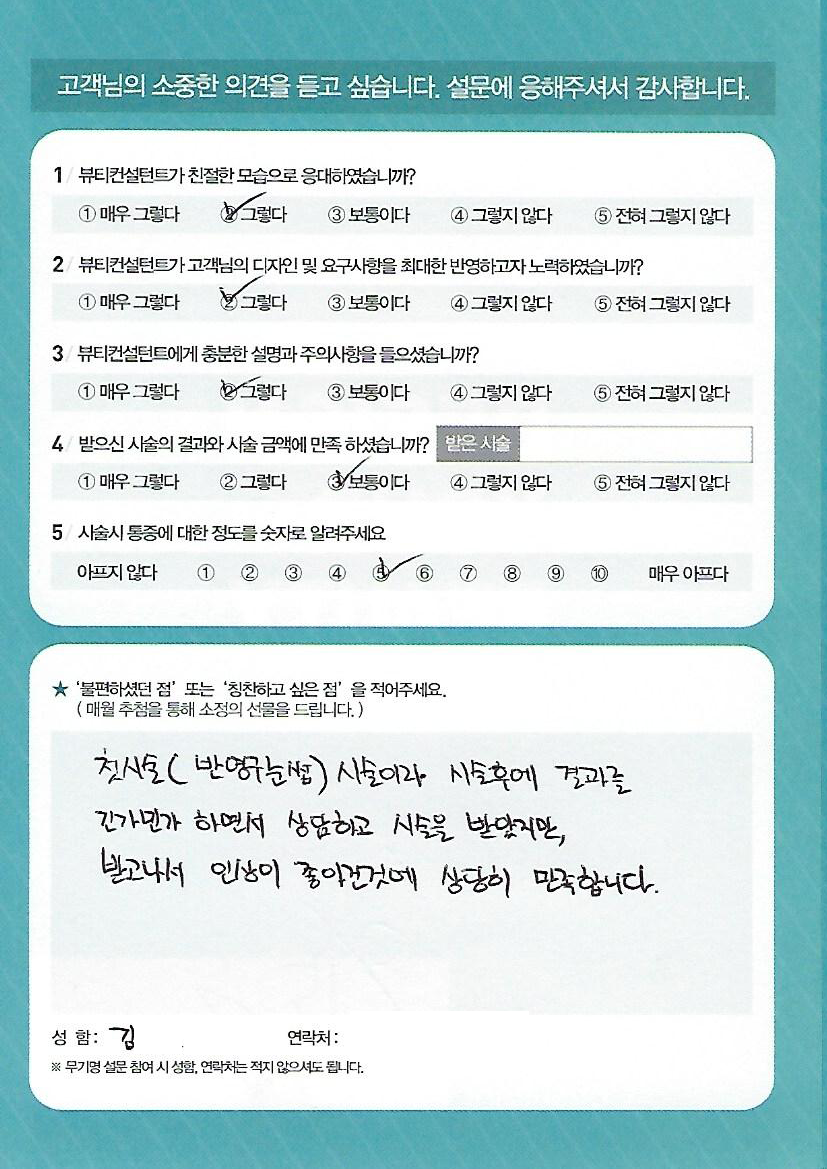 고객님의 소중한 의견을 듣고 싶습니다. 설문에 응해주셔서 감사합니다.
1 / 뷰티컨설턴트가 친절한 모습으로 응대하였습니까?
① 매우 그렇다 ② 그렇다 ③ 보통이다 ④ 그렇지 않다 ⑤ 전혀 그렇지 않다
2 / 뷰티컨설턴트가 고객님의 디자인 및 요구사항을 최대한 반영하고자 노력하였습니까?
① 매우 그렇다 ② 그렇다 ③ 보통이다 ④ 그렇지 않다 ⑤ 전혀 그렇지 않다
3 / 뷰티컨설턴트에게 충분한 설명과 주의사항을 들으셨습니까?
① 매우 그렇다 ② 그렇다 ③ 보통이다 ④ 그렇지 않다 ⑤ 전혀 그렇지 않다
4 / 받으신 시술의 결과와 시술 금액에 만족 하셨습니까? 받은 시술
① 매우 그렇다 ② 그렇다 ③ 보통이다 ④ 그렇지 않다 ⑤ 전혀 그렇지 않다
5 / 시술시 통증에 대한 정도를 숫자로 알려주세요
아프지 않다 ① ② ③ ④ ⑤ ⑥ ⑦ ⑧ ⑨ ⑩ 매우 아프다
★ '불편하셨던 점' 또는 '칭찬하고 싶은 점' 을 적어주세요.
( 매월 추첨을 통해 소정의 선물을 드립니다. )
첫시술( 반영구눈썹) 시술이라 시술후에 결과를
긴가민가 하면서 상담하고 시술을 받았지만,
받고나서 인상이 좋아진것에 상당히 만족합니다.
성 함 : 김 연락처 :
※ 무기명 설문 참여 시 성함, 연락처는 적지 않으셔도 됩니다.